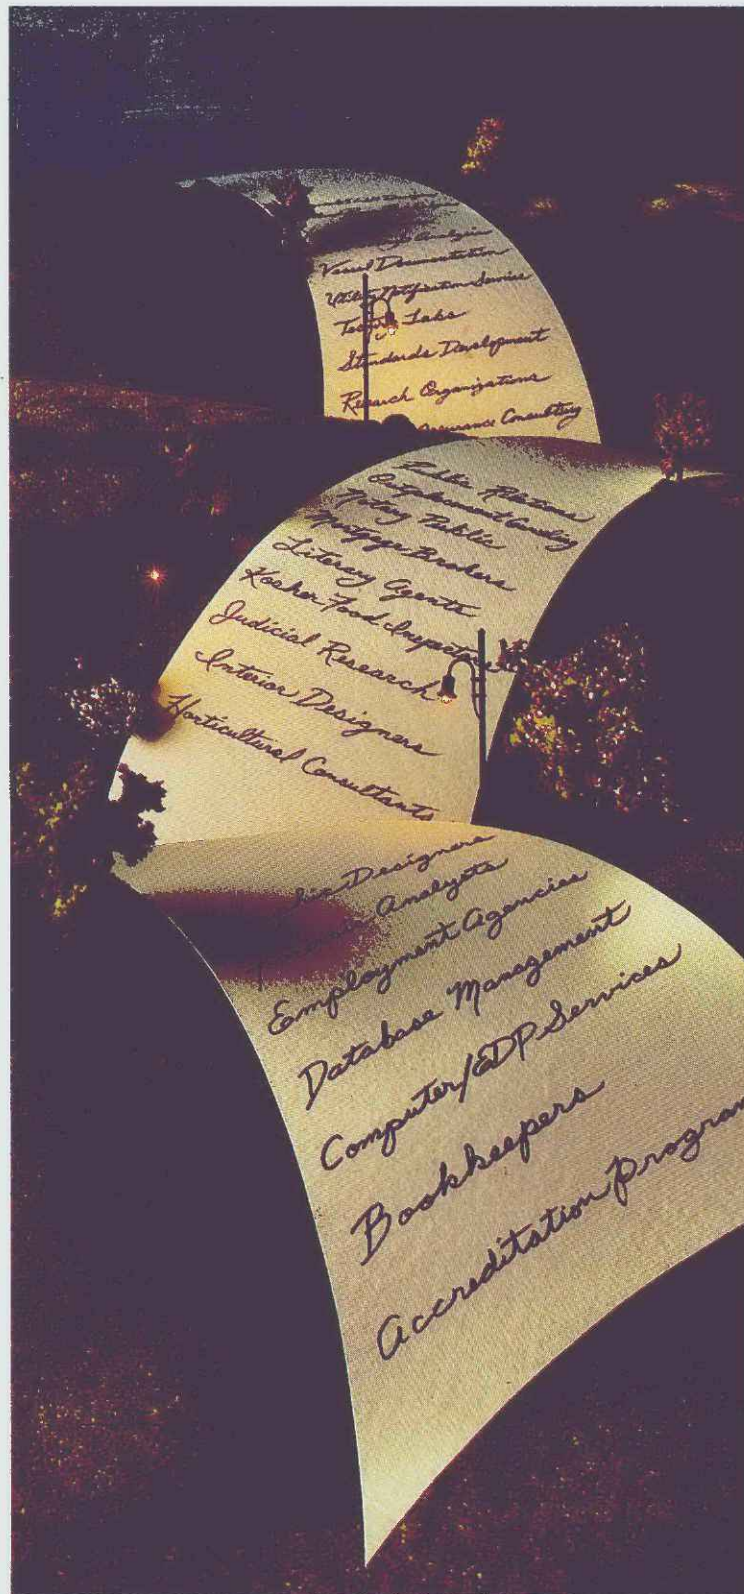 Analysis
Vessel Documentation
Utility Notification Service
Testing Labs
Standards Development
Research Organizations
Assurance Consulting
Public Relations
Notary Public
Mortgage Brokers
Literary Agents
Kosher Food
Judicial Research
Interior Designers
Horticultural Consultants
Designers
Analysts
Employment Agencies
Database Management
Computer/EDP Services
Bookkeepers
Accreditation Program